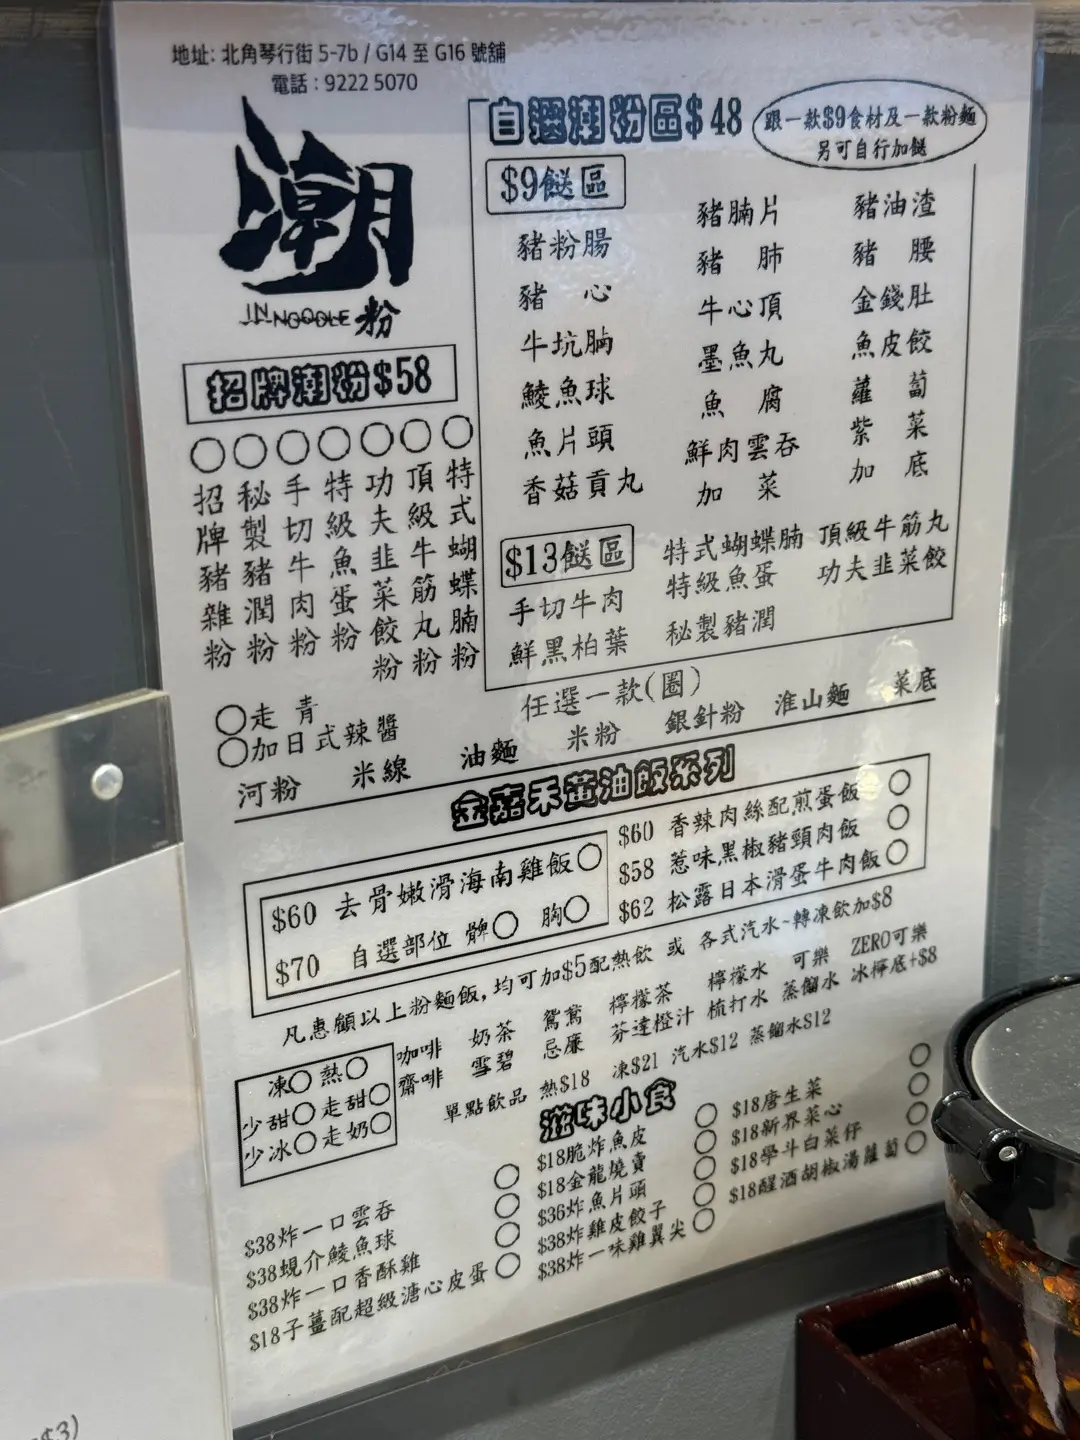 地址: 北角琴行街 5-7b / G14 至 G16 號舖
電話 : 9222 5070
潮
IN NOODLE 粉
招牌潮粉$58
招牌豬雜粉
秘製豬潤粉
手切牛肉粉
特級魚蛋粉
功夫韭菜餃粉
頂級牛筋丸粉
特式蝴蝶腩粉
走青
加日式辣醬
自選潮粉區$48
跟一款$9食材及一款粉麵
另可自行加餸
$9餸區
豬粉腸 豬腩片 豬油渣
豬心 豬肺 豬腰
牛坑腩 牛心頂 金錢肚
鯪魚球 墨魚丸 魚皮餃
魚片頭 魚腐 蘿蔔
香菇貢丸 鮮肉雲吞 紫菜
加菜 加底
$13餸區 特式蝴蝶腩 頂級牛筋丸
手切牛肉 特級魚蛋 功夫韭菜餃
鮮黑柏葉 秘製豬潤
任選一款(圈)
河粉 米線 油麵 米粉 銀針粉 淮山麵 菜底
金嘉禾黃油飯系列
$60 去骨嫩滑海南雞飯
$70 自選部位 髀 胸
$60 香辣肉絲配煎蛋飯
$58 惹味黑椒豬頸肉飯
$62 松露日本滑蛋牛肉飯
凡惠顧以上粉麵飯, 均可加$5配熱飲 或 各式汽水~轉凍飲加$8
凍 熱
少甜 走甜
少冰 走奶
咖啡 奶茶 鴛鴦 檸檬茶 檸檬水 可樂 ZERO可樂
齋啡 雪碧 忌廉 芬達橙汁 梳打水 蒸餾水 冰檸底+$8
單點飲品 熱$18 凍$21 汽水$12 蒸餾水$12
滋味小食
$38炸一口雲吞
$38蜆介鯪魚球
$38炸一口香酥雞
$18子薑配超級溏心皮蛋
$18脆炸魚皮
$18金龍燒賣
$36炸魚片頭
$38炸雞皮餃子
$38炸一味雞翼尖
$18唐生菜
$18新界菜心
$18學斗白菜仔
$18醒酒胡椒湯蘿蔔
$3)